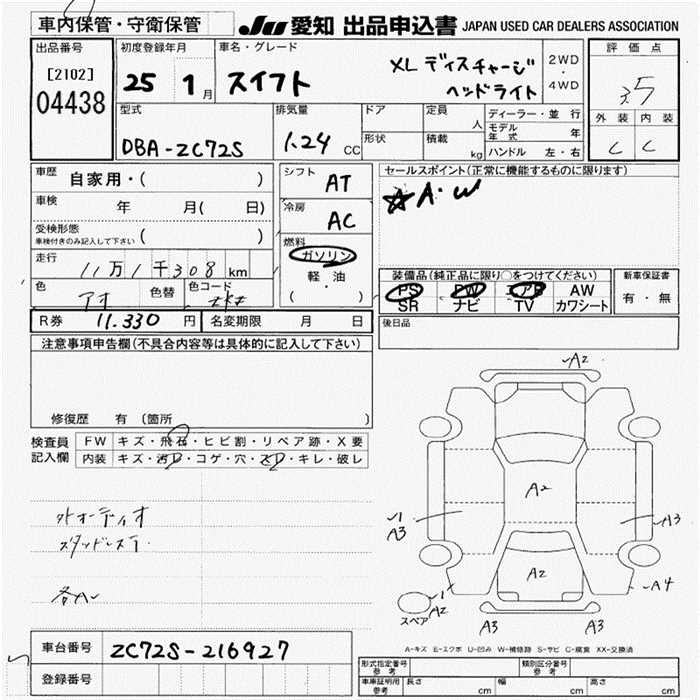 車内保管・守衛保管
JU 愛知 出品申込書 JAPAN USED CAR DEALERS ASSOCIATION
出品番号
[2102]
04438
初度登録年月
25 1月
車名・グレード
スイフト
XL ディスチャージ
ヘッドライト
2WD
・
4WD
評価点
3.5
外装 内装
C C
型式
DBA-ZC72S
排気量
1.24 CC
ドア
形状
定員 人
積載 kg
ディーラー・並行
モデル年式 年
ハンドル 左・右
車歴 自家用・( )
車検 年 月( 日)
受検形態
車検付きのみ記入して下さい ( )
走行 11万1千308km
色 アオ 色替 色コード ZKZ
シフト AT
冷房 AC
燃料
ガソリン
軽・油
( )
セールスポイント(正常に機能するものに限ります)
☆A・W
装備品(純正品に限り○をつけてください)
PS PW エアB AW
SR ナビ TV カワシート
新車保証書
有・無
後日品
R券 11.330 円 名変期限 月 日
注意事項申告欄(不具合内容等は具体的に記入して下さい)
修復歴 有 (箇所 )
検査員
記入欄
FW キズ・飛石・ヒビ割・リペア跡・X要
内装 キズ・汚レ・コゲ・穴・スレ・キレ・破レ
外オーディオ
スタッドレス
各A
A2
A2
A2
A1
A3
A3
A4
A1
A2
A3
A3
スペア
A-キズ E-エクボ U-凹み W-補修跡 S-サビ C-腐食 XX-交換済
車台番号 ZC72S-216927
登録番号
形式指定番号
参考
類別区分番号
参考
車庫証明用
参考
長さ cm 幅 cm 高さ cm